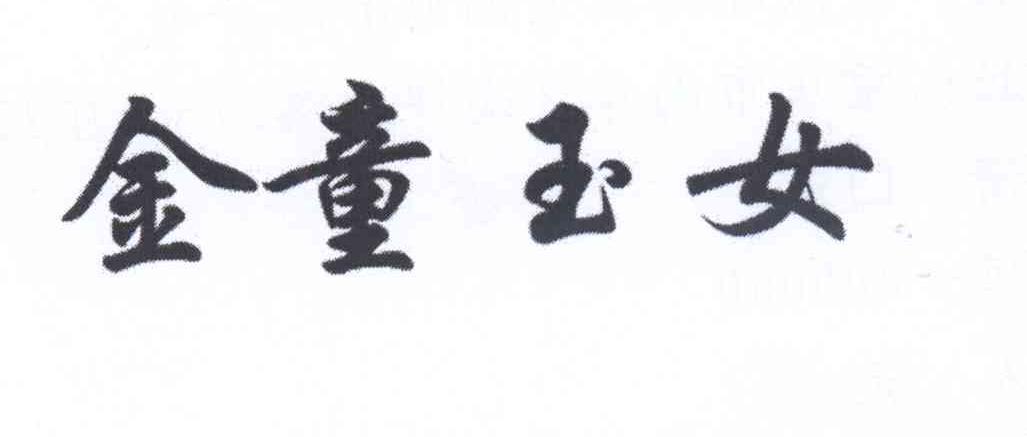 金童玉女